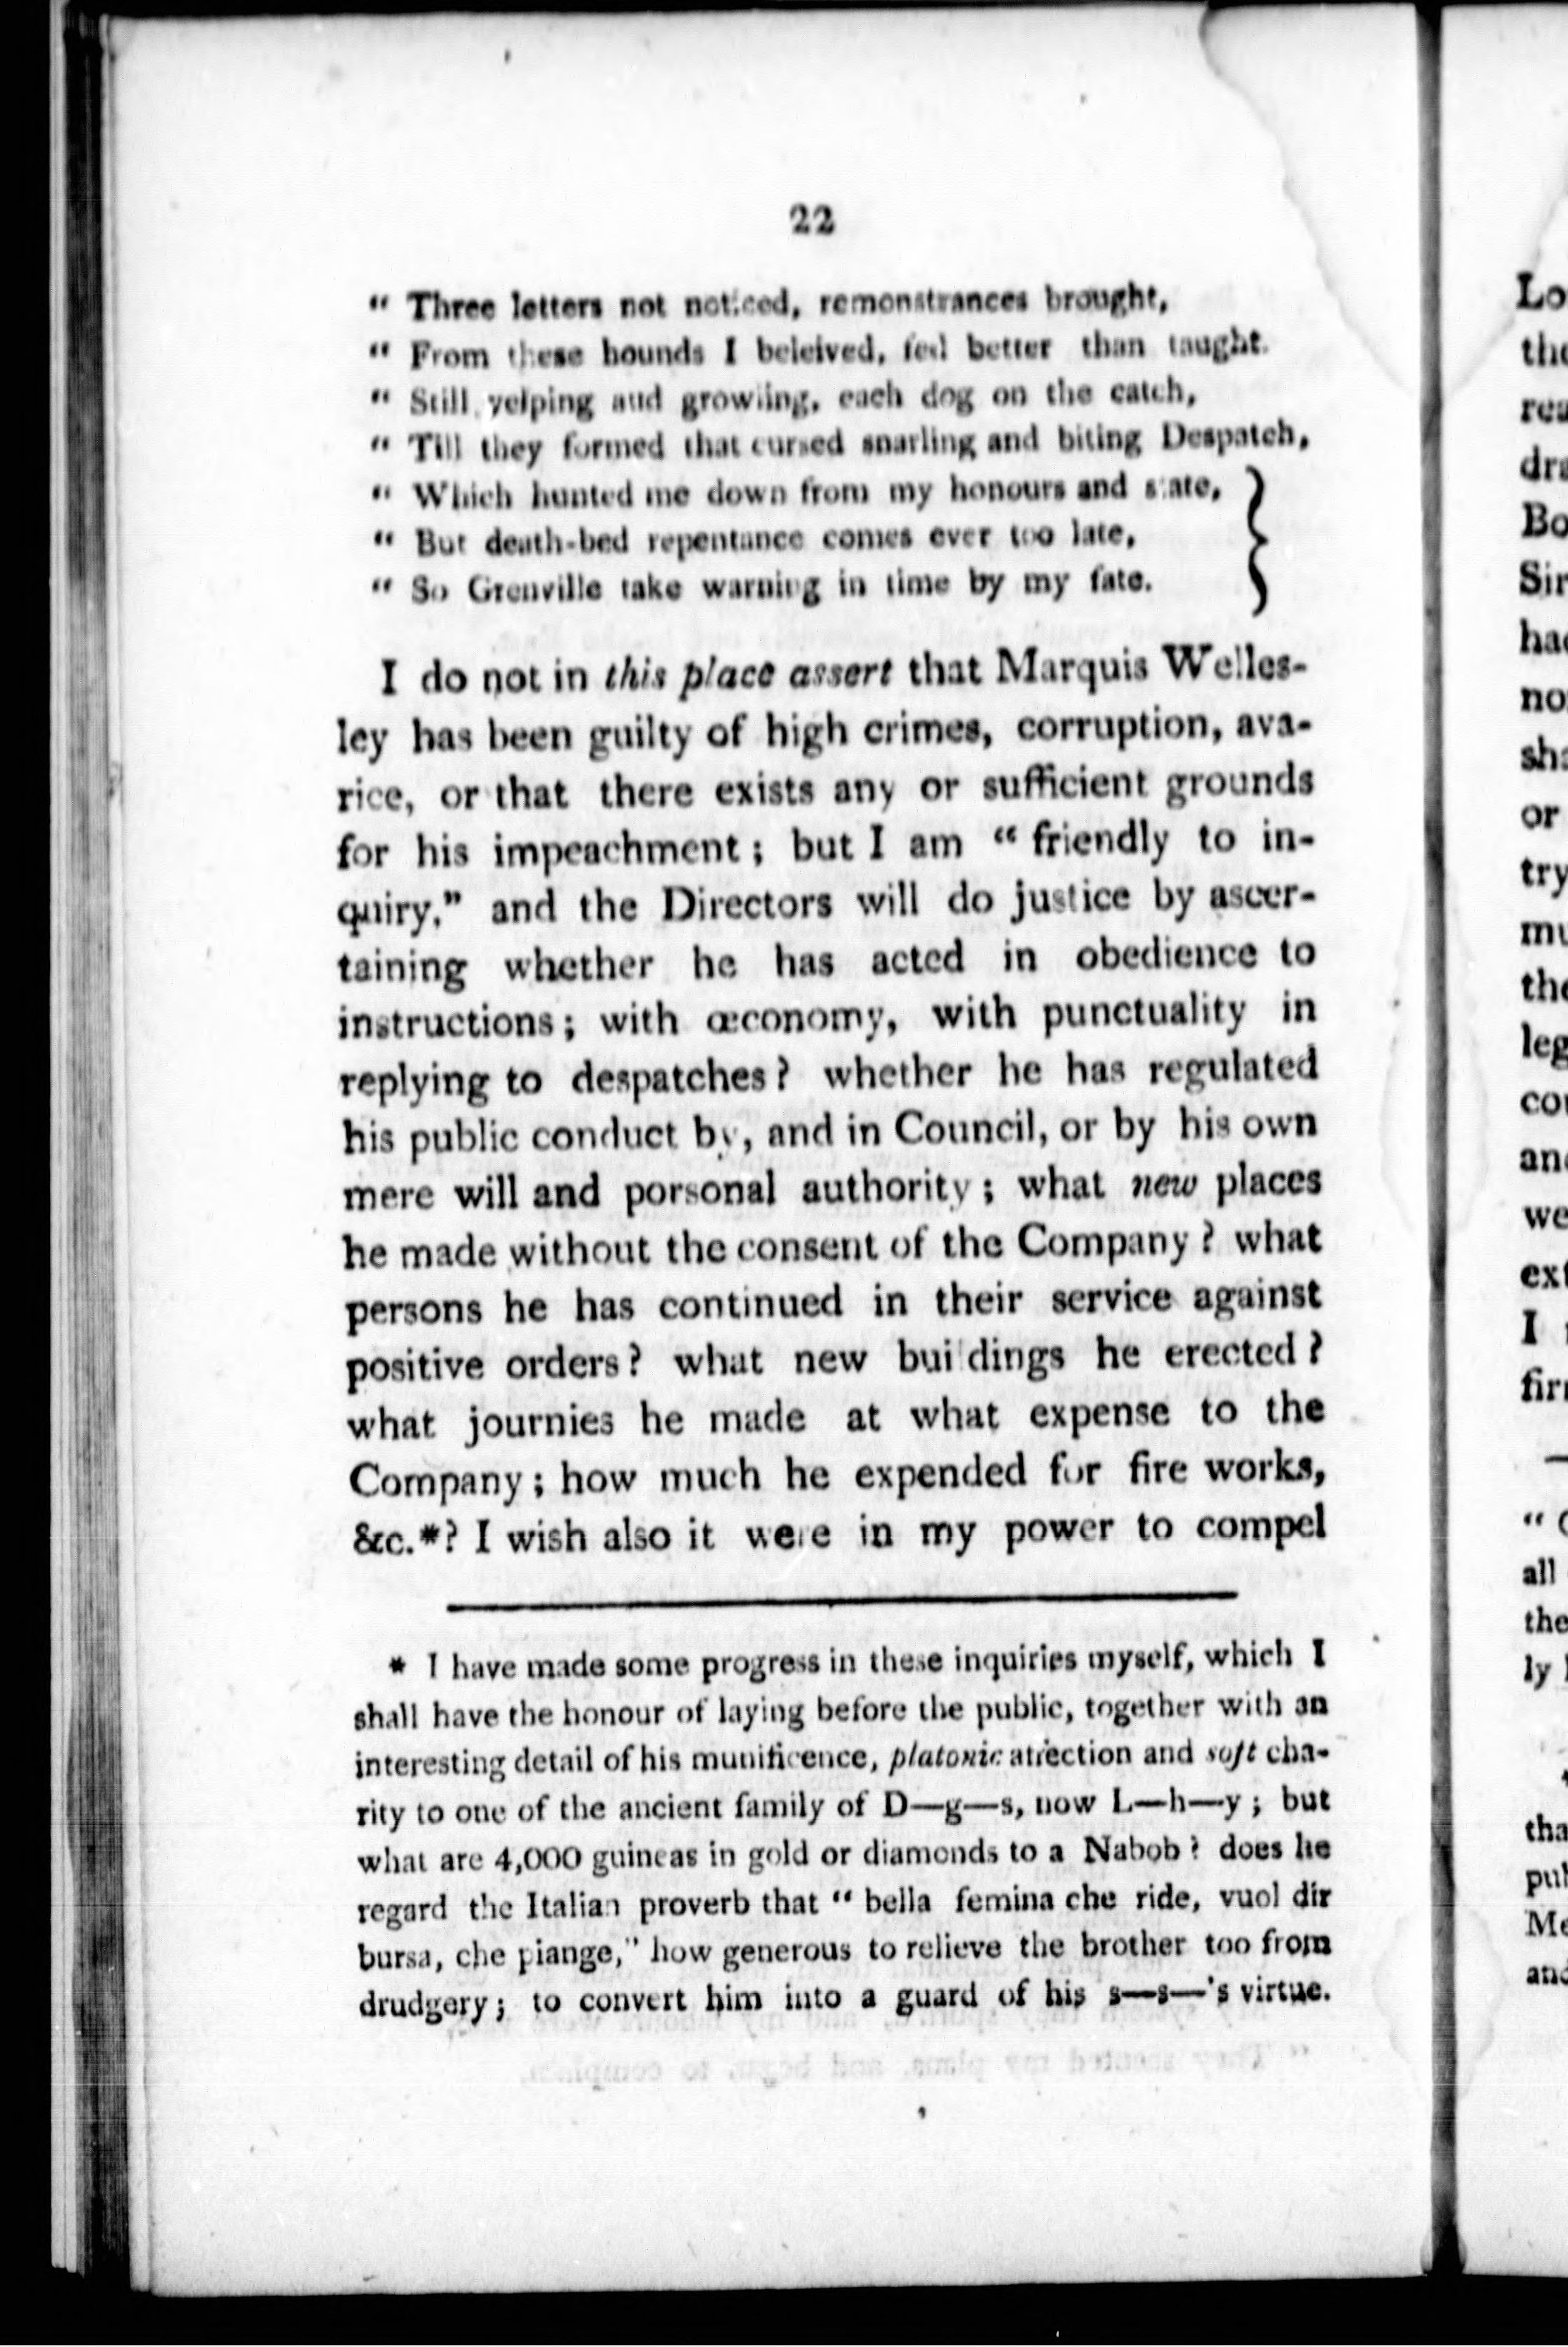 22
“ Three letters not noticed, remonstrances brought,
“ From these hounds I beleived, fed better than taught.
“ Still yelping and growling, each dog on the catch,
“ Till they formed that cursed snarling and biting Despatch,
“ Which hunted me down from my honours and state,
“ But death-bed repentance comes ever too late,
“ So Grenville take warning in time by my fate.
I do not in this place assert that Marquis Welles-
ley has been guilty of high crimes, corruption, ava-
rice, or that there exists any or sufficient grounds
for his impeachment; but I am “ friendly to in-
quiry,” and the Directors will do justice by ascer-
taining whether he has acted in obedience to
instructions; with œconomy, with punctuality in
replying to despatches? whether he has regulated
his public conduct by, and in Council, or by his own
mere will and porsonal authority; what new places
he made without the consent of the Company? what
persons he has continued in their service against
positive orders? what new buildings he erected?
what journies he made at what expense to the
Company; how much he expended for fire works,
&c.*? I wish also it were in my power to compel
* I have made some progress in these inquiries myself, which I
shall have the honour of laying before the public, together with an
interesting detail of his munificence, platonic affection and soft cha-
rity to one of the ancient family of D—g—s, now L—h—y; but
what are 4,000 guineas in gold or diamonds to a Nabob? does he
regard the Italian proverb that “ bella femina che ride, vuol dir
bursa, che piange,” how generous to relieve the brother too from
drudgery; to convert him into a guard of his s—s—'s virtue.
Lo
the
rea
dra
Bo
Sir
had
no
sha
or
try
mu
the
leg
cou
and
we
ext
I
fir
all
the
ly
tha
pub
Me
and